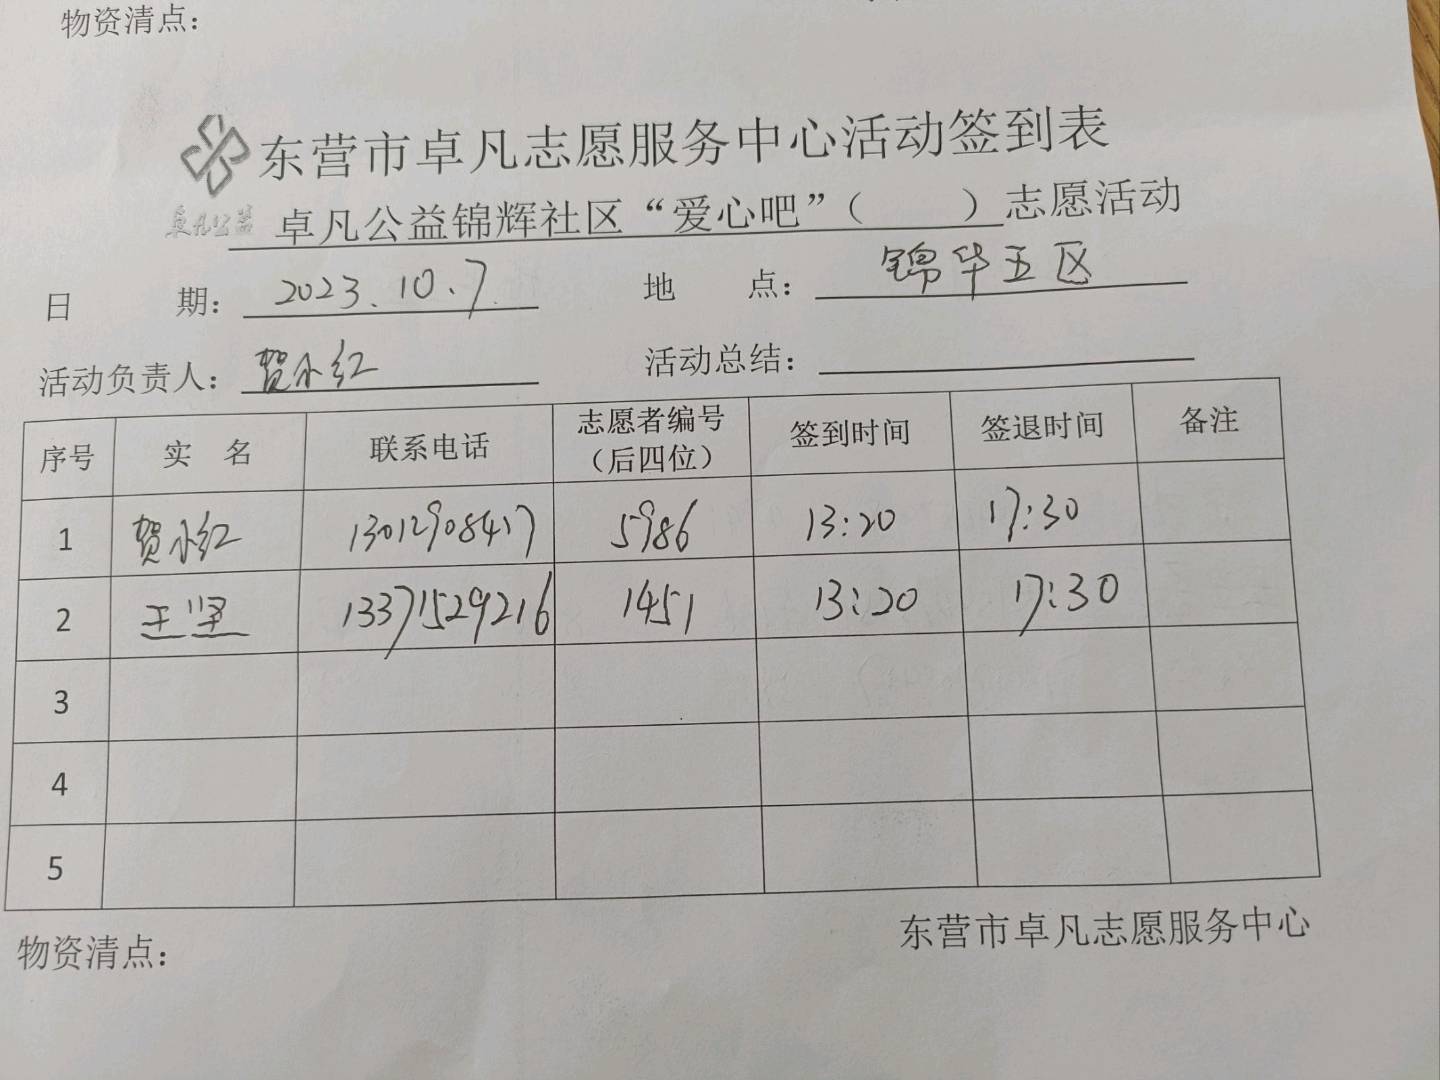 物资清点：
东营市卓凡志愿服务中心活动签到表
卓凡公益 卓凡公益锦辉社区“爱心吧”（ ）志愿活动
日 期： 2023.10.7. 地 点： 锦华五区
活动负责人： 贺小红 活动总结：
序号 实 名 联系电话 志愿者编号（后四位） 签到时间 签退时间 备注
1 贺小红 13012908417 5986 13:20 17:30
2 王坚 13371529216 1451 13:20 17:30
3
4
5
物资清点： 东营市卓凡志愿服务中心